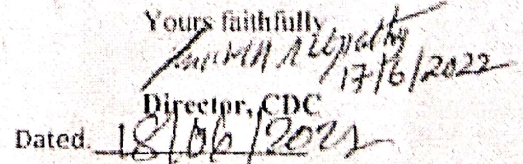 Yours faithfully
17/6/2022
Director, CDC
Dated. 18/06/2022